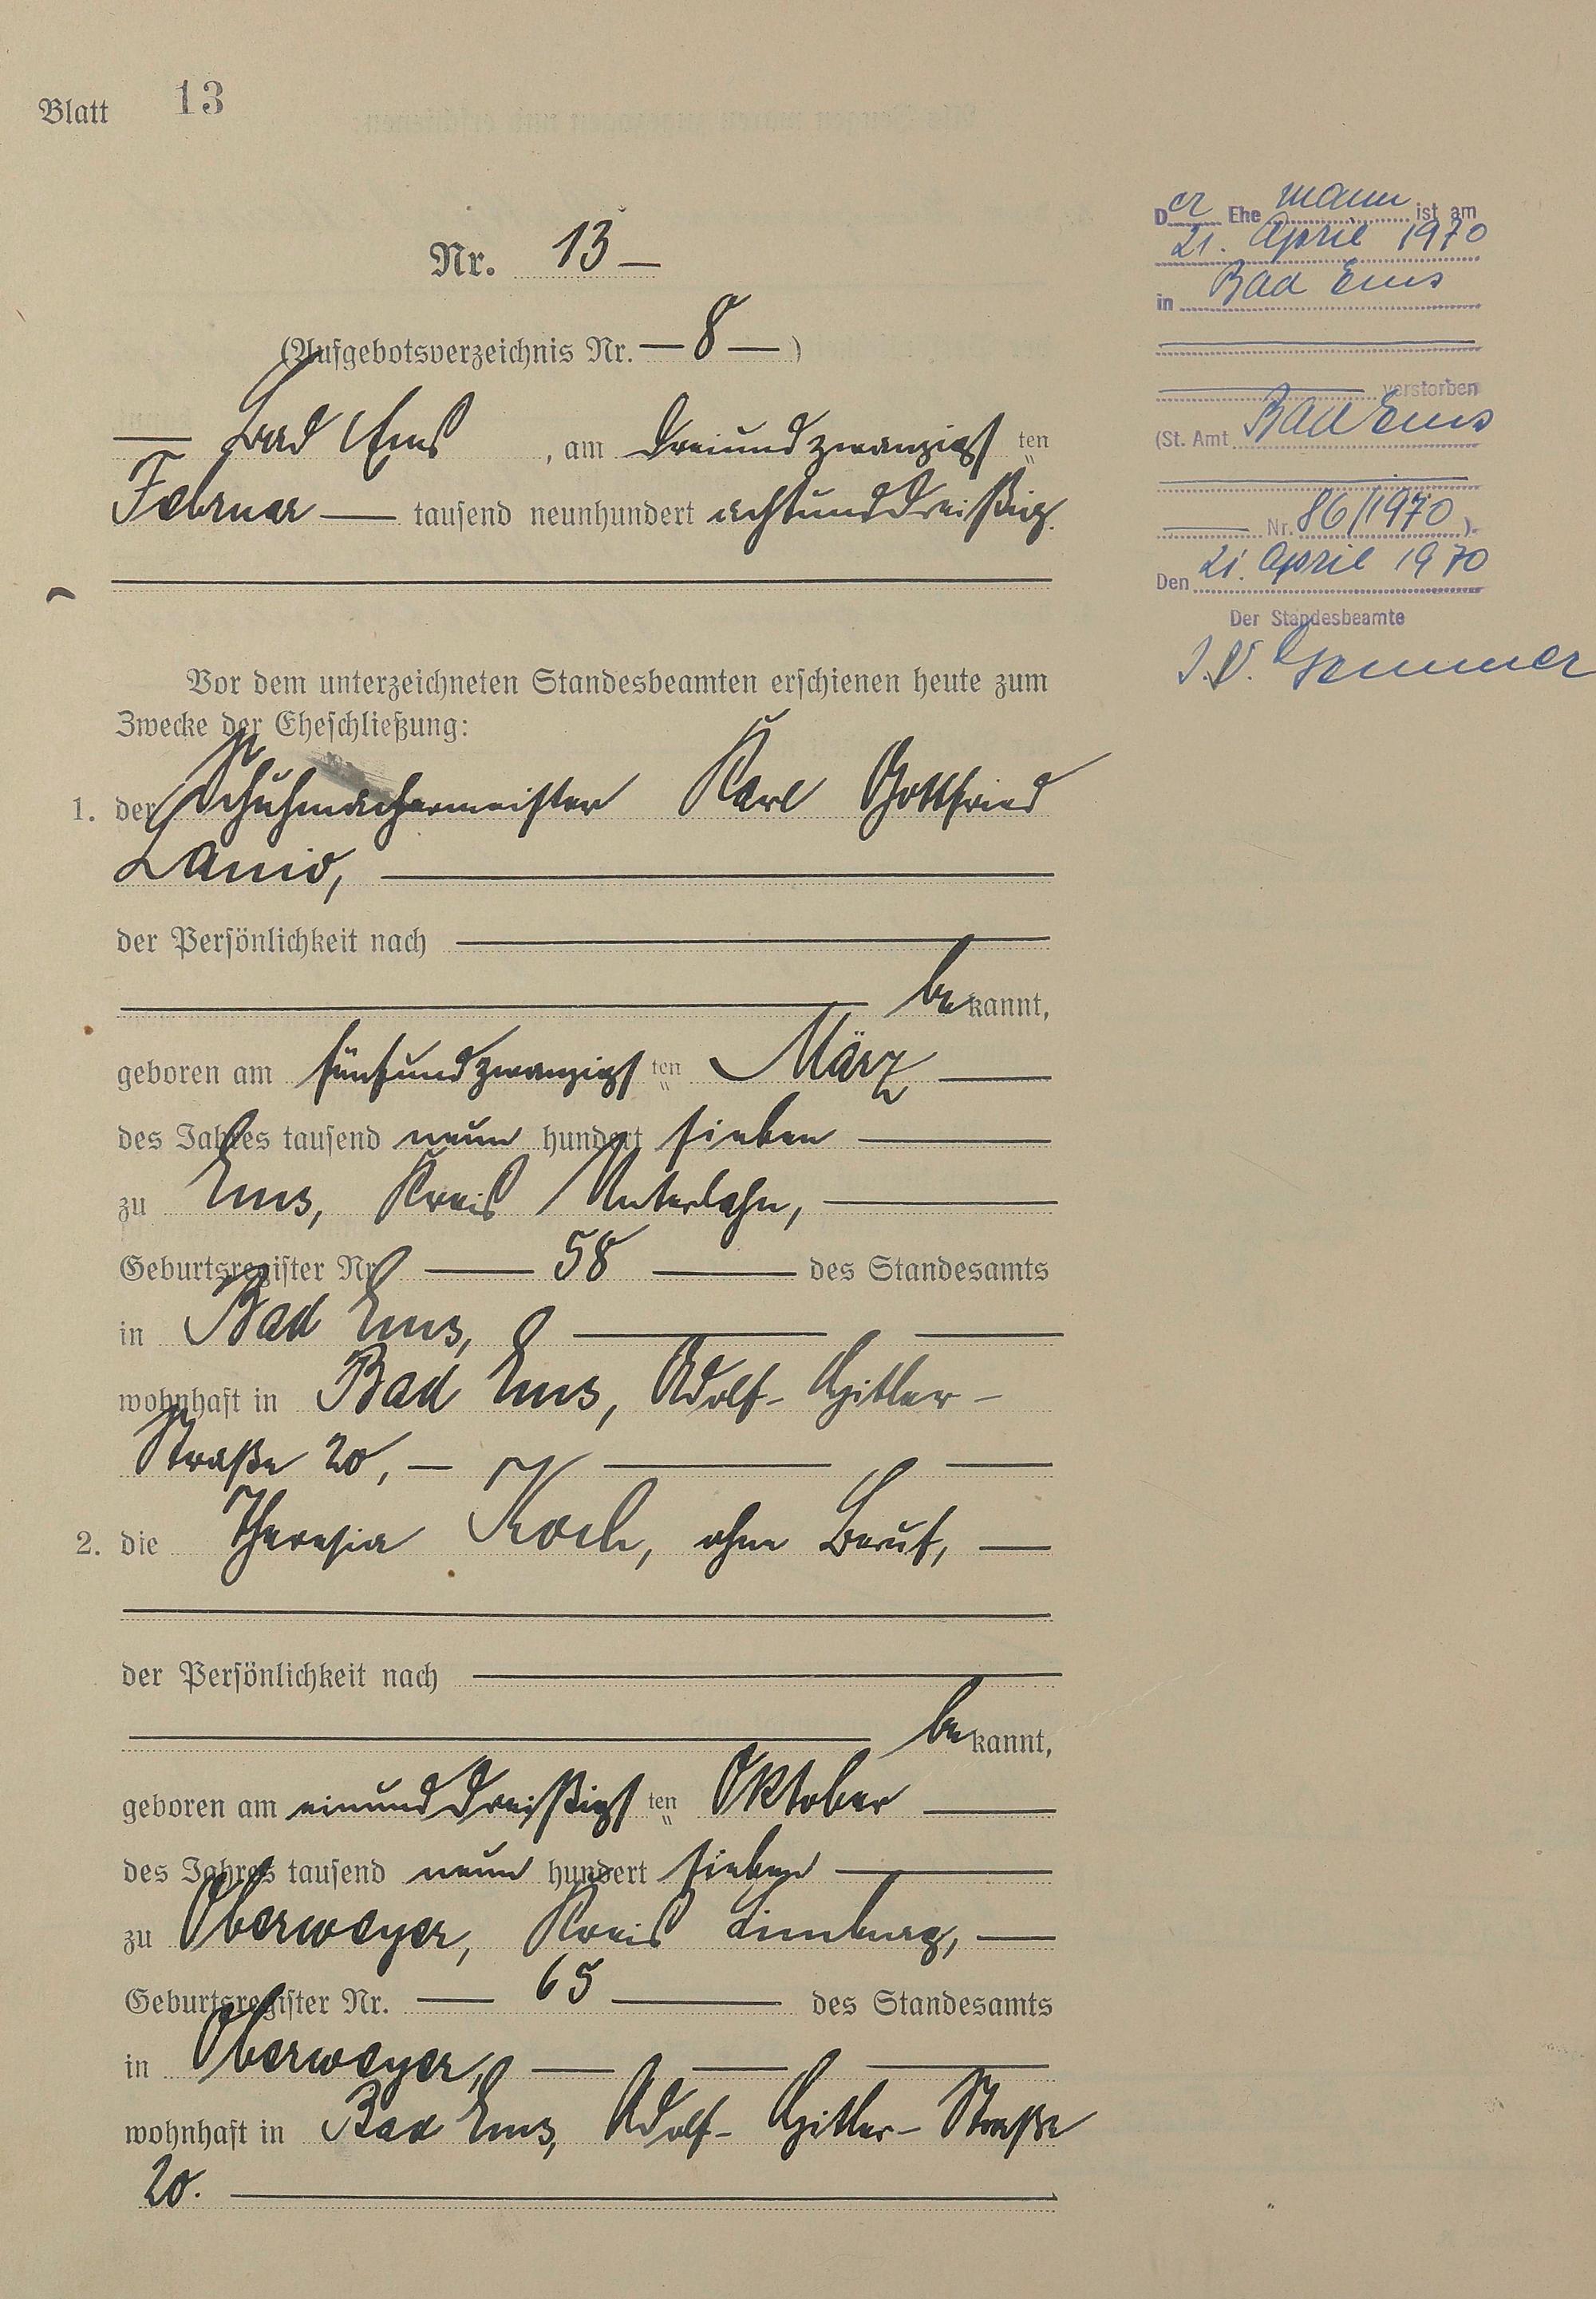 Blatt 13
Nr. 13 —
(Aufgebotsverzeichnis Nr. — 8 —)
— Bad Ems, am dreiundzwanzigsten
Februar — tausend neunhundert achtunddreißig.
Vor dem unterzeichneten Standesbeamten erschienen heute zum
Zwecke der Eheschließung:
1. der Schuhmachermeister Karl Gottfried
Lanio, —
der Persönlichkeit nach —
— bekannt,
geboren am fünfundzwanzigsten März —
des Jahres tausend neun hundert sieben —
zu Ems, Kreis Unterlahn, —
Geburtsregister Nr. — 58 — des Standesamts
in Bad Ems, —
wohnhaft in Bad Ems, Adolf-Hitler-
Straße 20, —
2. die Theresia Koch, ohne Beruf, —
der Persönlichkeit nach —
— bekannt,
geboren am einunddreißigsten Oktober —
des Jahres tausend neun hundert sieben —
zu Oberweyer, Kreis Limburg, —
Geburtsregister Nr. — 65 — des Standesamts
in Oberweyer, —
wohnhaft in Bad Ems, Adolf-Hitler-Straße
20. —
Der Ehemann ist am
21. April 1970
in Bad Ems
verstorben
(St. Amt Bad Ems
— Nr. 86/1970).
Den 21. April 1970
Der Standesbeamte